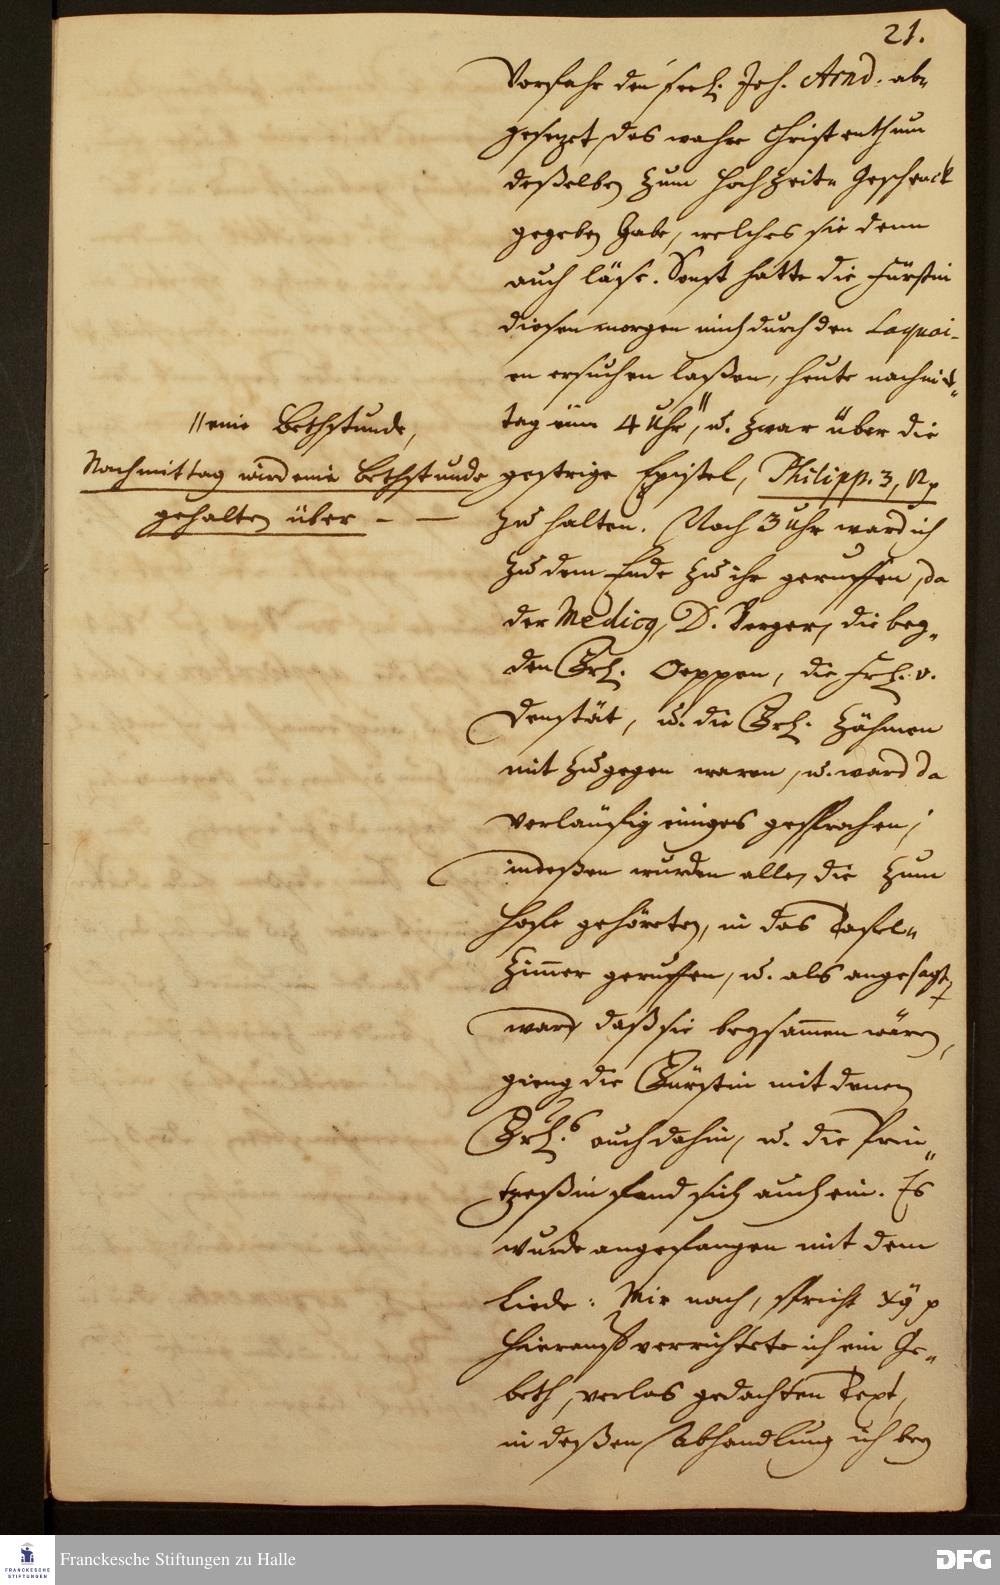 21.
Vorfahr den seel. Joh. Arnd. ab-
gesezet, das wahre Christenthum
deßelben zum Hochzeit- Geschenck
gegeben habe, welches sie denn
auch läse. Sonst hatte die Fürstin
diesen morgen mich durch den Laquai-
en ersuchen laßen, heute nachmit-
tag üm 4 Uhr, || u. zwar über die
|| eine Bethstunde,
Nachmittag wird eine Bethstunde
gehalten über - -
gestrige Epistel, Philipp. 3, 17
zu halten. Nach 3 Uhr ward ich
zu dem Ende zu ihr geruffen, da
der Medicq, D. Berger, die bey-
den Frl. Oeppen, die Frl. v.
Denstät, u. die Frl. Zähmen
mit zugegen waren, u. ward da
verläufig einiges gesprochen;
indeßen wurden alle, die zum
Hofe gehöreten, in das Tafel-
Zimmer geruffen, u. als angesagt
ward daß sie beysamen wären,
gieng die Fürstin mit denen
Frl.s auch dahin, u. die Prin-
tzeßin fand sich auch ein. Es
wurde angefangen mit dem
Liede: Mir nach, spricht Xg p
Hierauf verrichtete ich ein Ge-
beth, verlas gedachten Text,
in deßen Abhandlung ich bey
Franckesche Stiftungen zu Halle
FRANCKESCHE
STIFTUNGEN
DFG